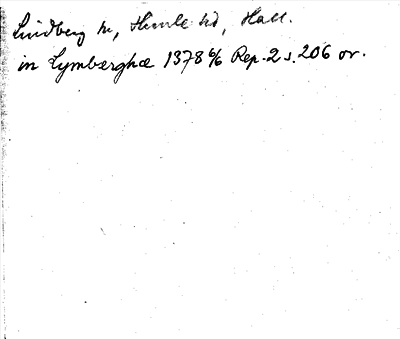 Lindberg sn, Himle hd, Hall.
in Lymberghæ 1378 6/6 Rep. 2 s. 206 or.